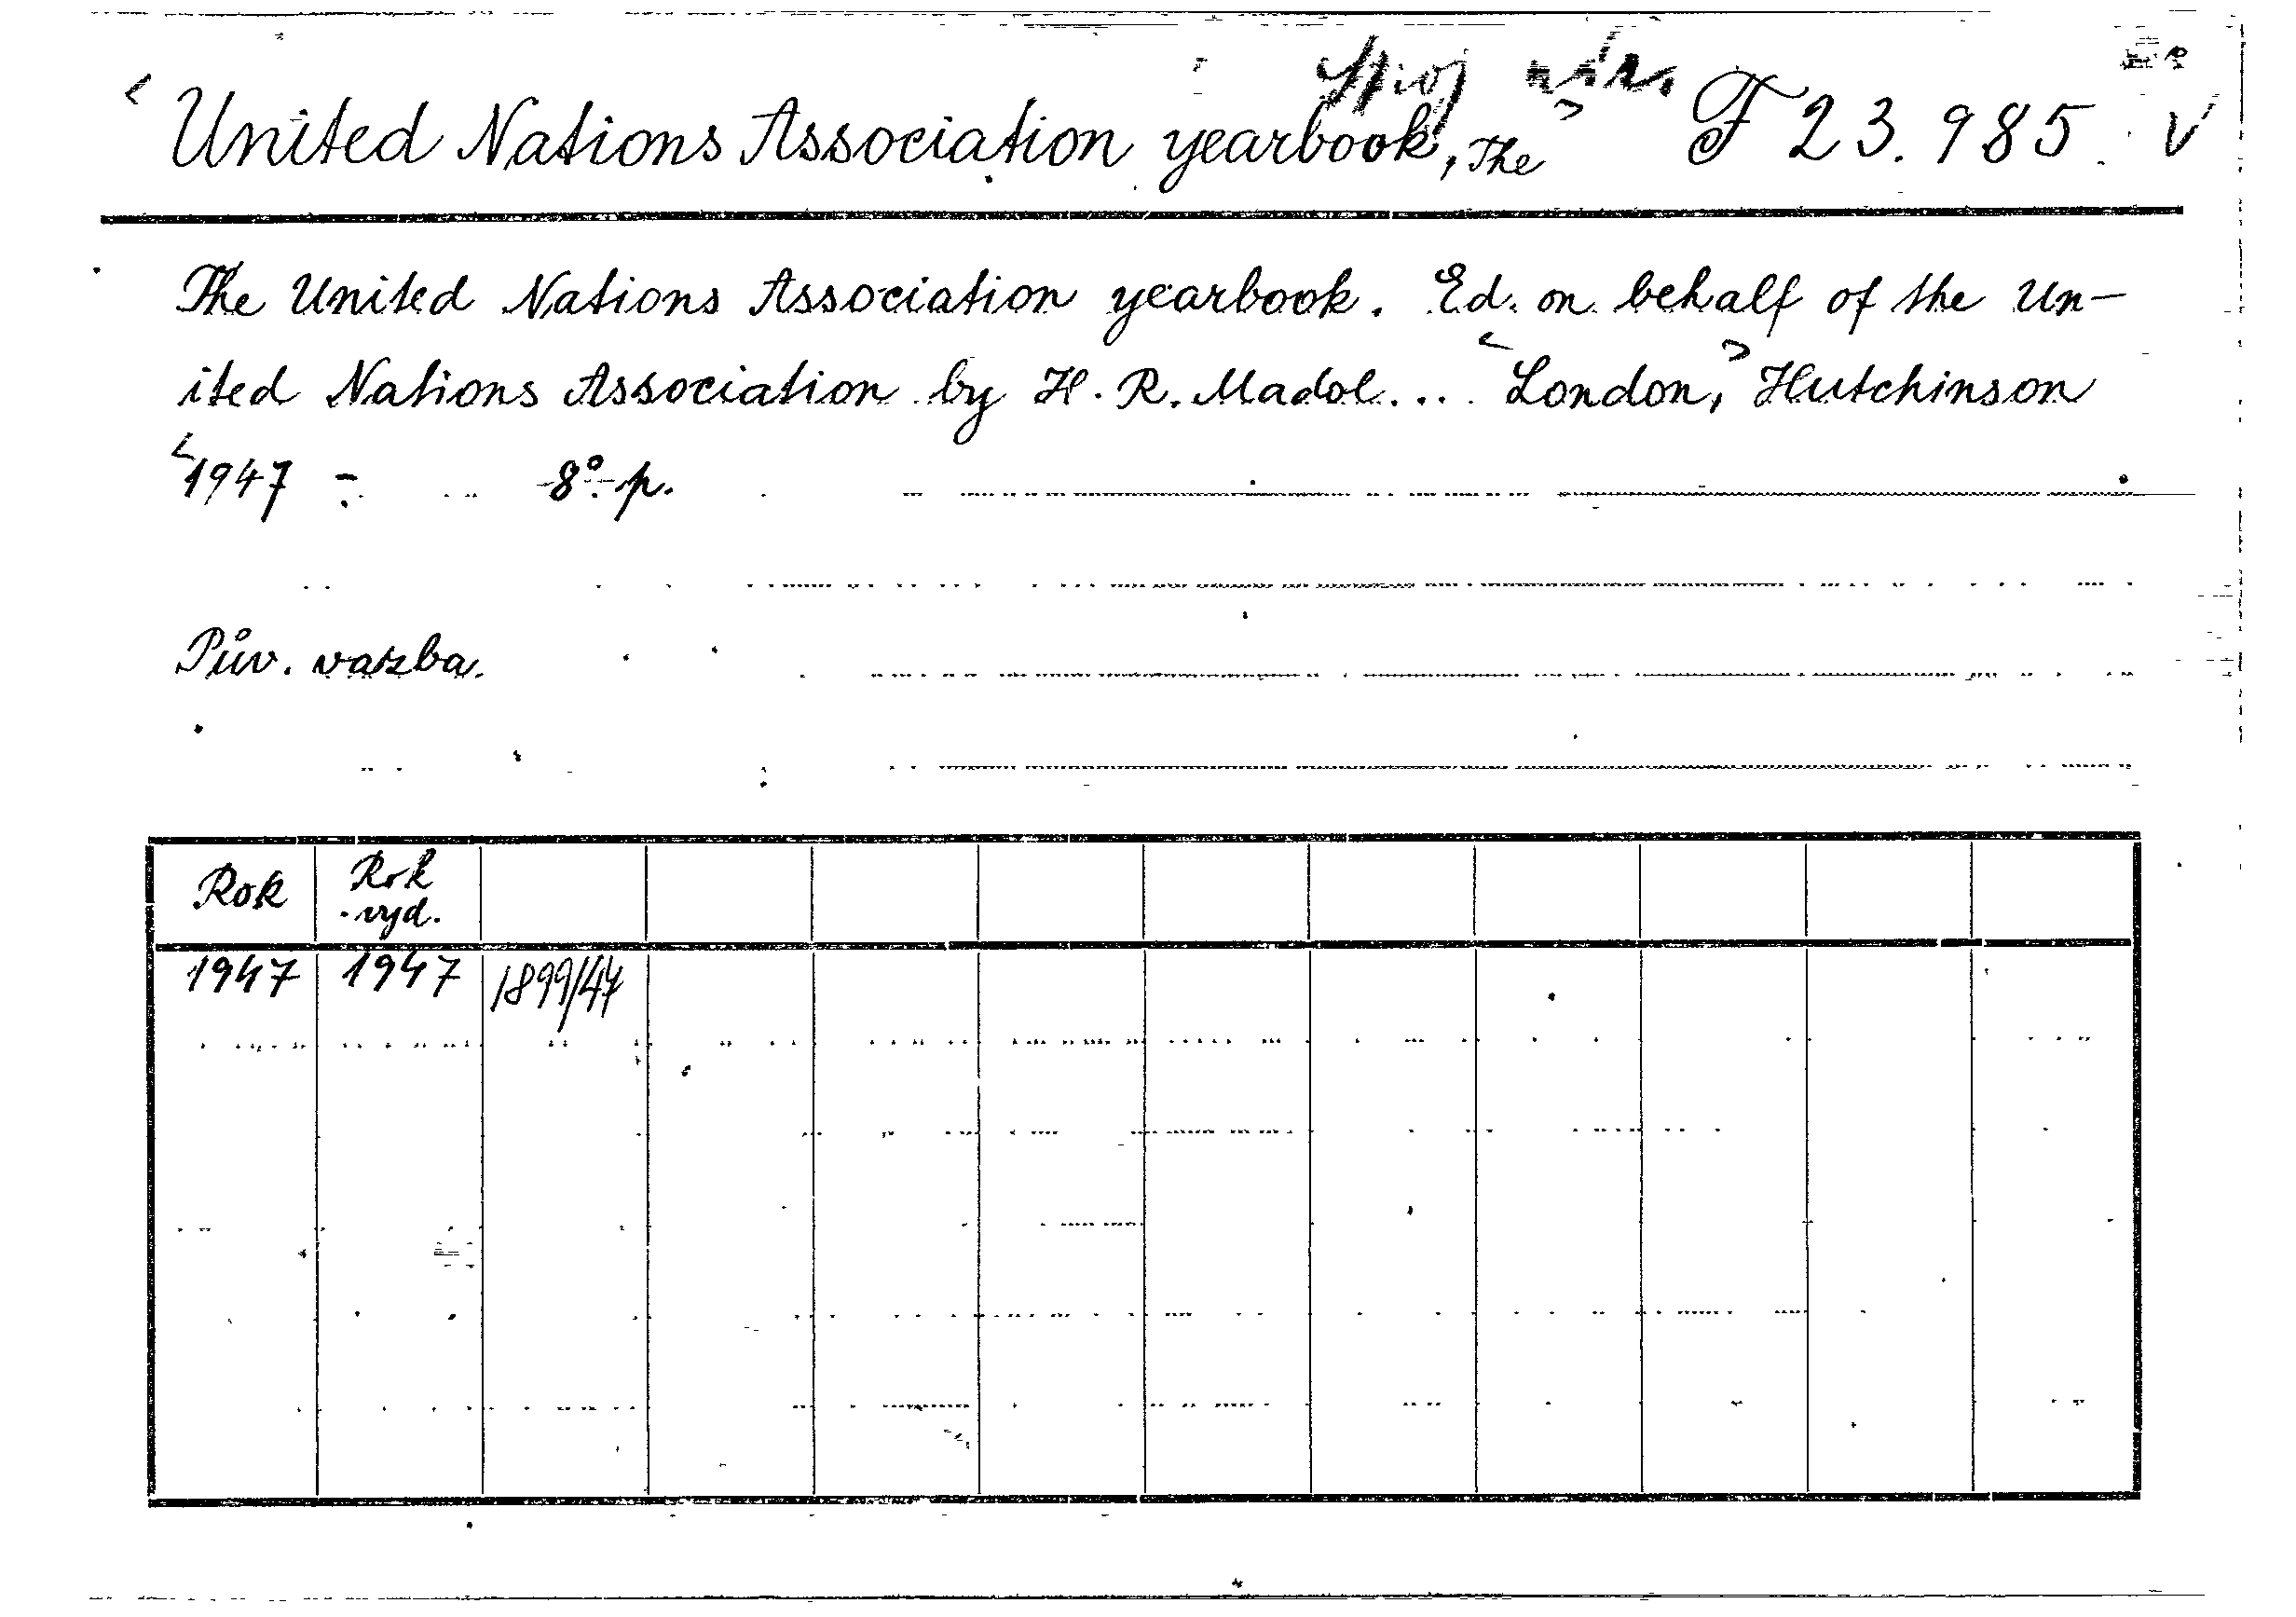 United Nations Association yearbook, The F 23.985 v
The United Nations Association yearbook. Ed. on behalf of the Un-
ited Nations Association by H. R. Madol... London, Hutchinson
1947 - 8° p.
Pův. vazba.
Rok Rok vyd.
1947 1947 1899/47